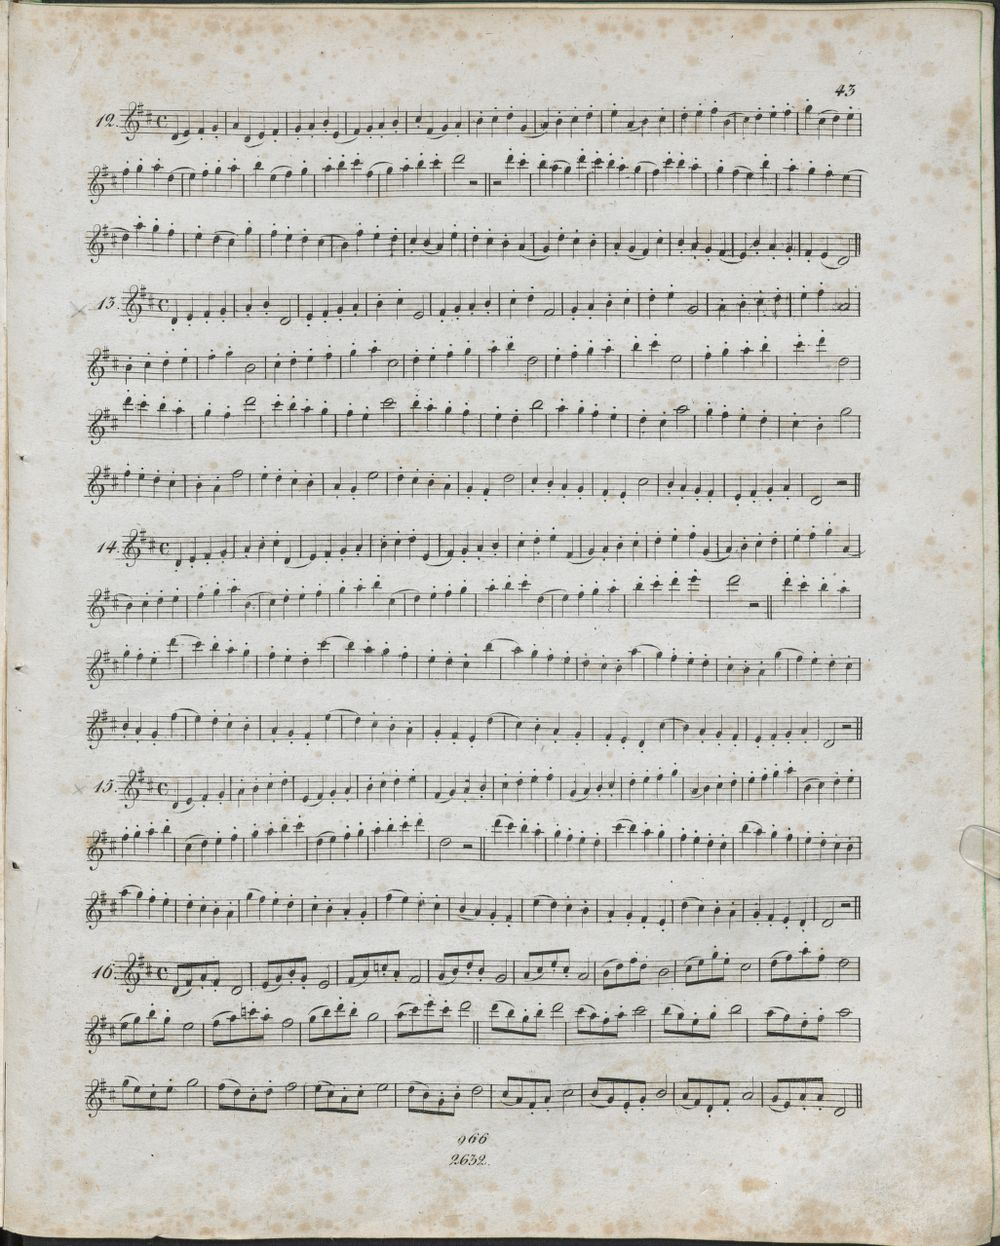 43
12.
13.
14.
15.
16.
966
2632.